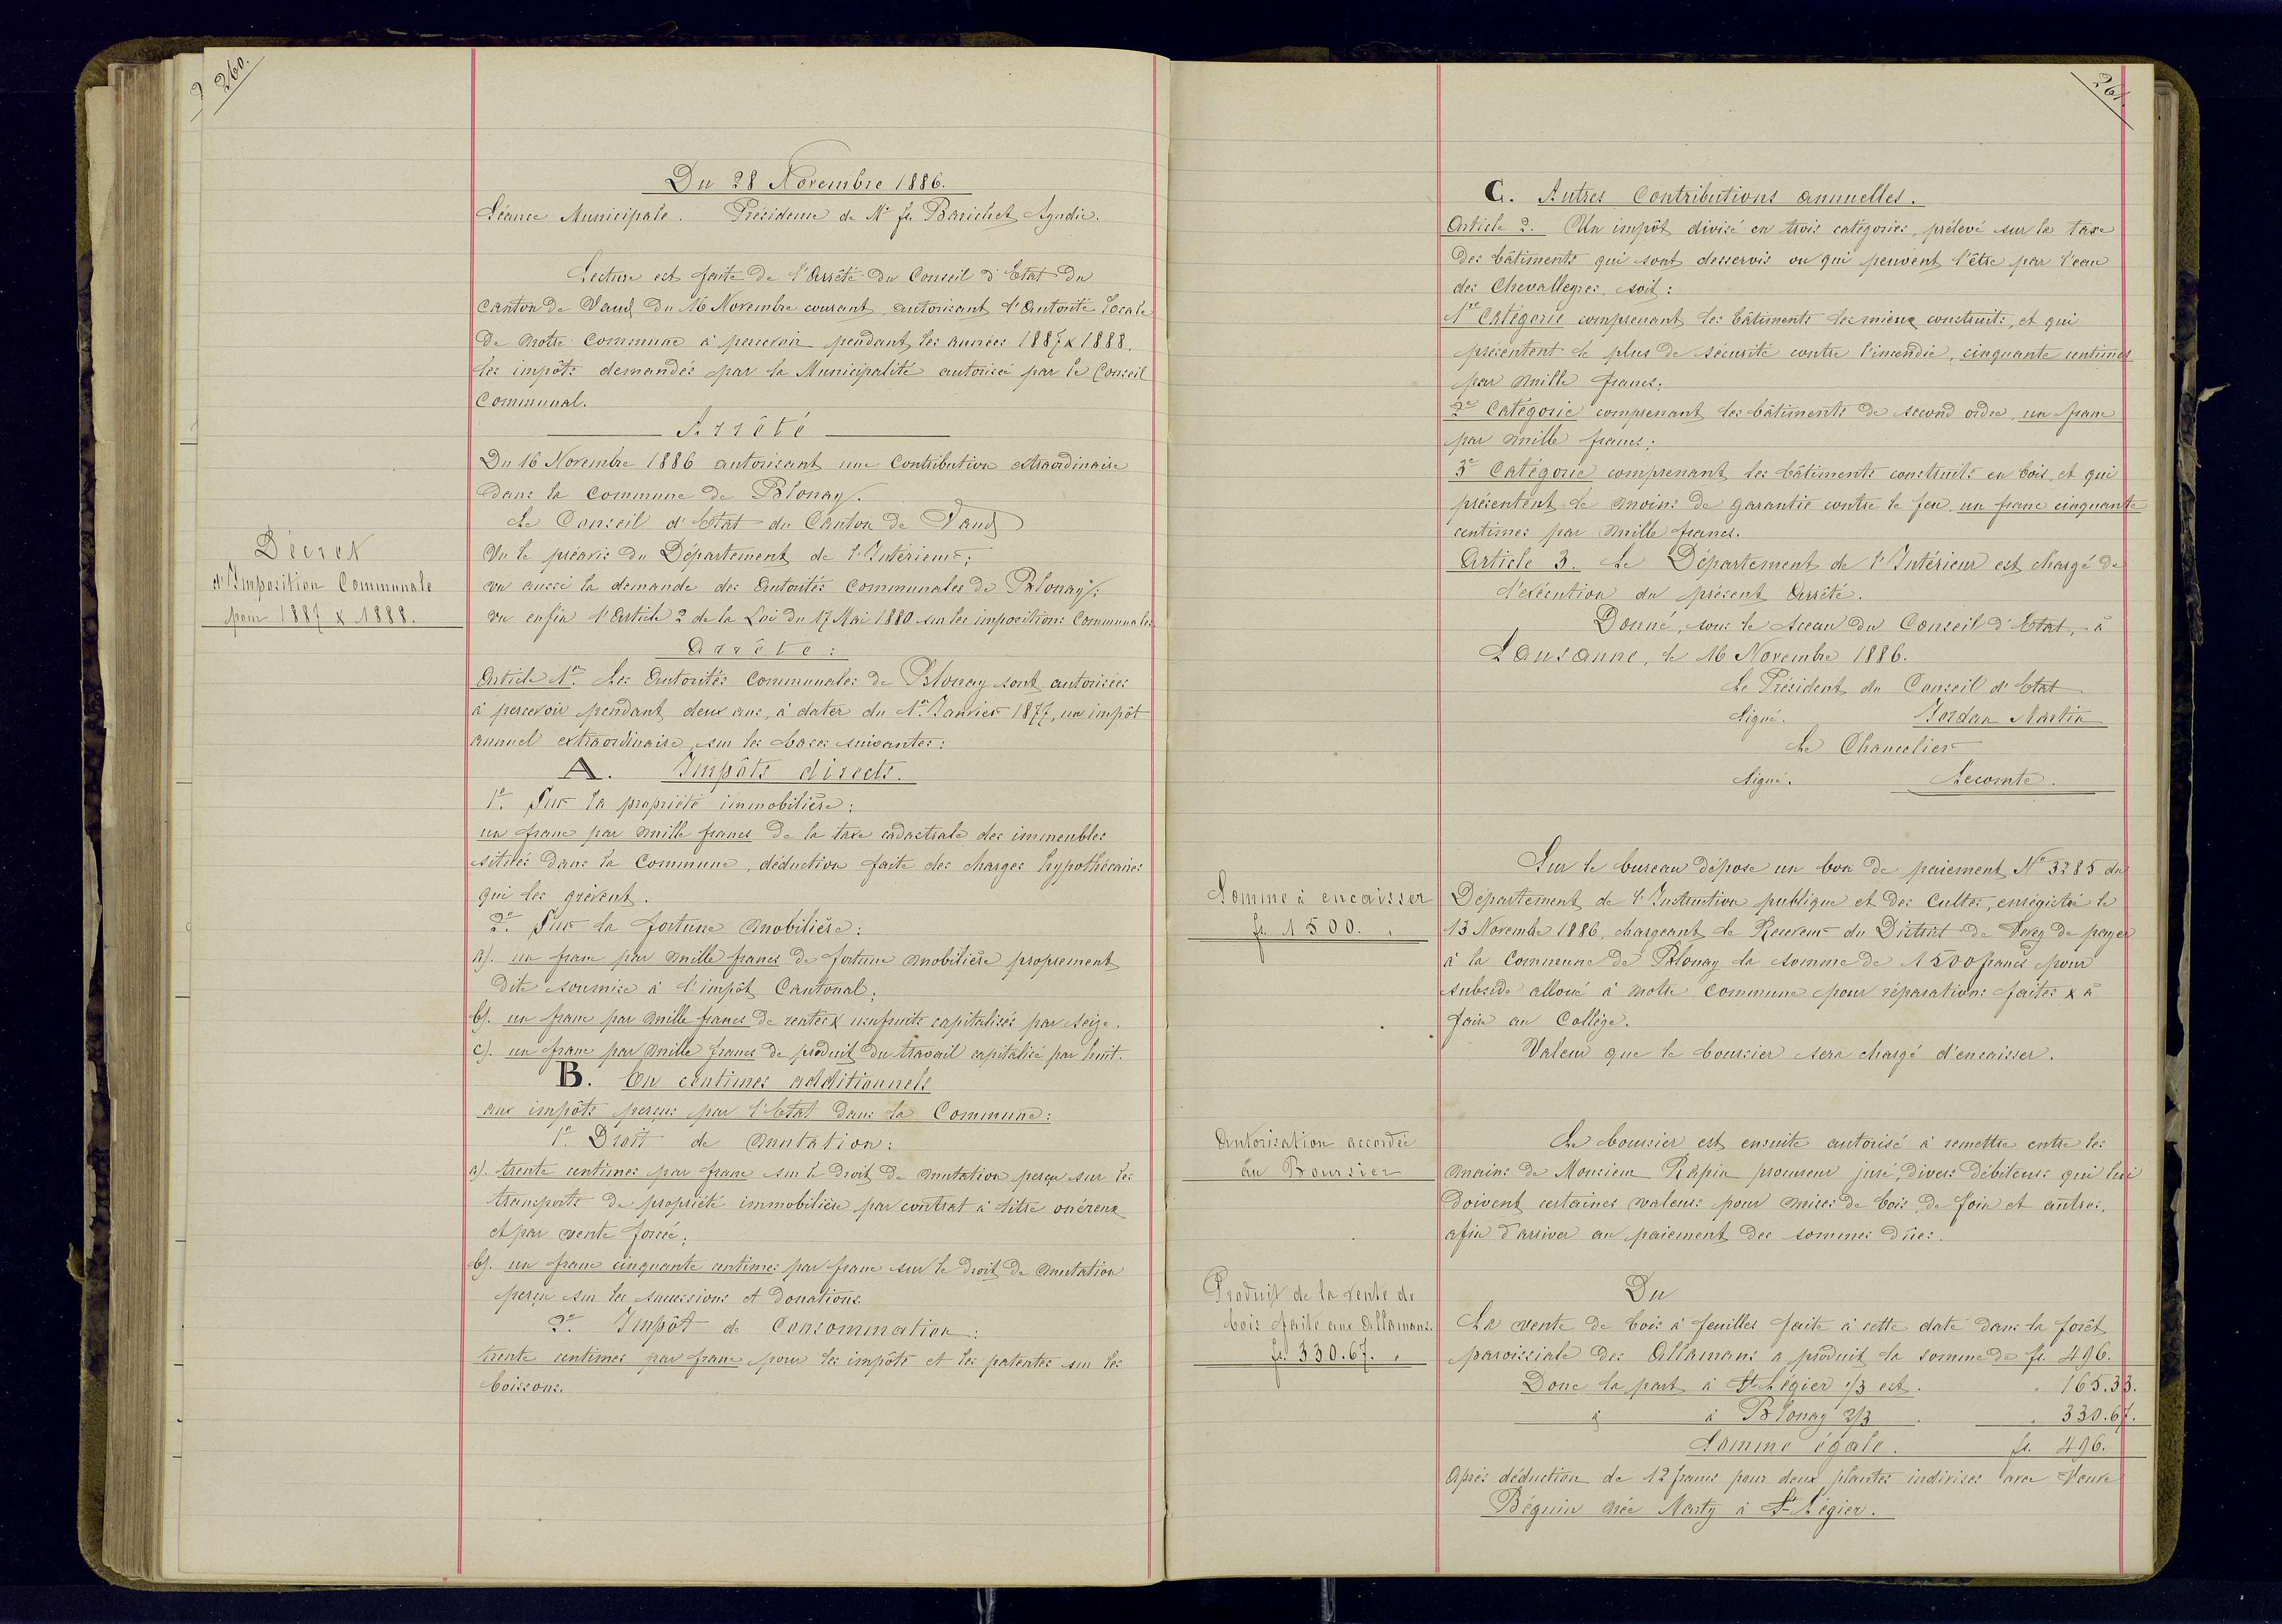 260.
Du 28 Novembre 1886.
Séance Municipale. Présidence de Mr fs Barichet Syndic.
Lecture est faite de l'Arrêté du Conseil d'Etat du
Canton de Vaud du 16 Novembre courant, autorisant l'Autorité locale
de notre Commune à percevoir pendant les années 1887 & 1888.
les impôts demandés par la Municipalité autorisée par le Conseil
Communal.
Arrêté
Du 16 Novembre 1886 autorisant une Contribution extraordinaire
dans la Commune de Blonay.
Le Conseil d'Etat du Canton de Vaud
Décret
d'Imposition Communale
pour 1887 & 1888.
Vu le préavis du Département de l'Intérieur;
vu aussi la demande des Autorités Communales de Blonay;
vu enfin l'Article 2 de la Loi du 17 Mai 1880 sur les impositions Communales
Arrête:
Article 1er. Les Autorités Communales de Blonay sont autorisées
à percevoir pendant deux ans, à dater du 1er Janvier 1877, un impôt
annuel extraordinaire, sur les bases suivantes:
A. Impôts directs.
1e. Sur la propriété immobilière:
un franc par mille francs de la taxe cadastrale des immeubles
situés dans la Commune, déduction faite des charges hypothécaires
qui les grèvent.
2e. Sur la fortune mobilière:
a). un franc par mille francs de fortune mobilière proprement
dite soumise à l'impôt Cantonal;
b). un franc par mille francs de rentes & usufruits capitalisés par seize.
c). un franc par mille francs de produit du travail capitalisé par huit.
B. En centimes additionnels
aux impôts perçus par l'Etat dans la Commune:
1e. Droit de mutation:
a). trente centimes par franc sur le droit de mutation perçu sur les
transports de propriété immobilière par contrat à titre onéreux
et par vente forcée;
b). un franc cinquante centimes par franc sur le droit de mutation
perçu sur les successions et donations.
2e. Impôt de Consommation:
trente centimes par franc pour les impôts et les patentes sur les
boissons.
261.
C. Autres Contributions annuelles.
Article 2. Un impôt divisé en trois catégories, prélevé sur la taxe
des bâtiments qui sont desservis ou qui peuvent l'être par l'eau
des Chevalleyres, soit:
1re Catégorie comprenant les bâtiments les mieux construits, et qui
présentent le plus de sécurité contre l'incendie, cinquante centimes
par mille francs;
2e Catégorie comprenant les bâtiments de second ordre, un franc
par mille francs;
3e Catégorie comprenant les bâtiments construits en bois, et qui
présentent le moins de garantie contre le feu, un franc cinquante
centimes par mille francs.
Article 3. Le Département de l'Intérieur est chargé de
l'exécution du présent Arrêté.
Donné, sous le sceau du Conseil d'Etat, à
Lausanne, le 16 Novembre 1886.
Le Président du Conseil d'Etat
Signé. Jordan Martin
Le Chancelier
Signé. Lecomte.
Somme à encaisser
fr. 1500.
Sur le bureau dépose un bon de paiement No 3285 du
Département de l'Instruction publique et des Cultes, enregistré le
13 Novembre 1886, chargeant le Receveur du District de Vevey de payer
à la Commune de Blonay la somme de 1500 francs pour
subside alloué à notre Commune pour réparations faites & à
faire au Collège.
Valeur que le boursier sera chargé d'encaisser.
Autorisation accordée
au Boursier
Le boursier est ensuite autorisé à remettre entre les
mains de Monsieur Rapin procureur juré, divers débiteurs qui lui
doivent certaines valeurs pour mises de bois, de foin et autres,
afin d'arriver au paiement des sommes dûes.
Produit de la vente de
bois faite aux Allamans.
fr. 330.67.
Du
La vente de bois à feuilles faite à cette date dans la forêt
paroissiale des Allamans a produit la somme de fr. 496.
Donc la part à St-Légier 1/3 est. 165.33.
à Blonay 2/3 330.67.
Somme égale. fr. 496.
Après déduction de 12 francs pour deux plantes indivises avec Veuve
Béguin née Marty à St-Légier.